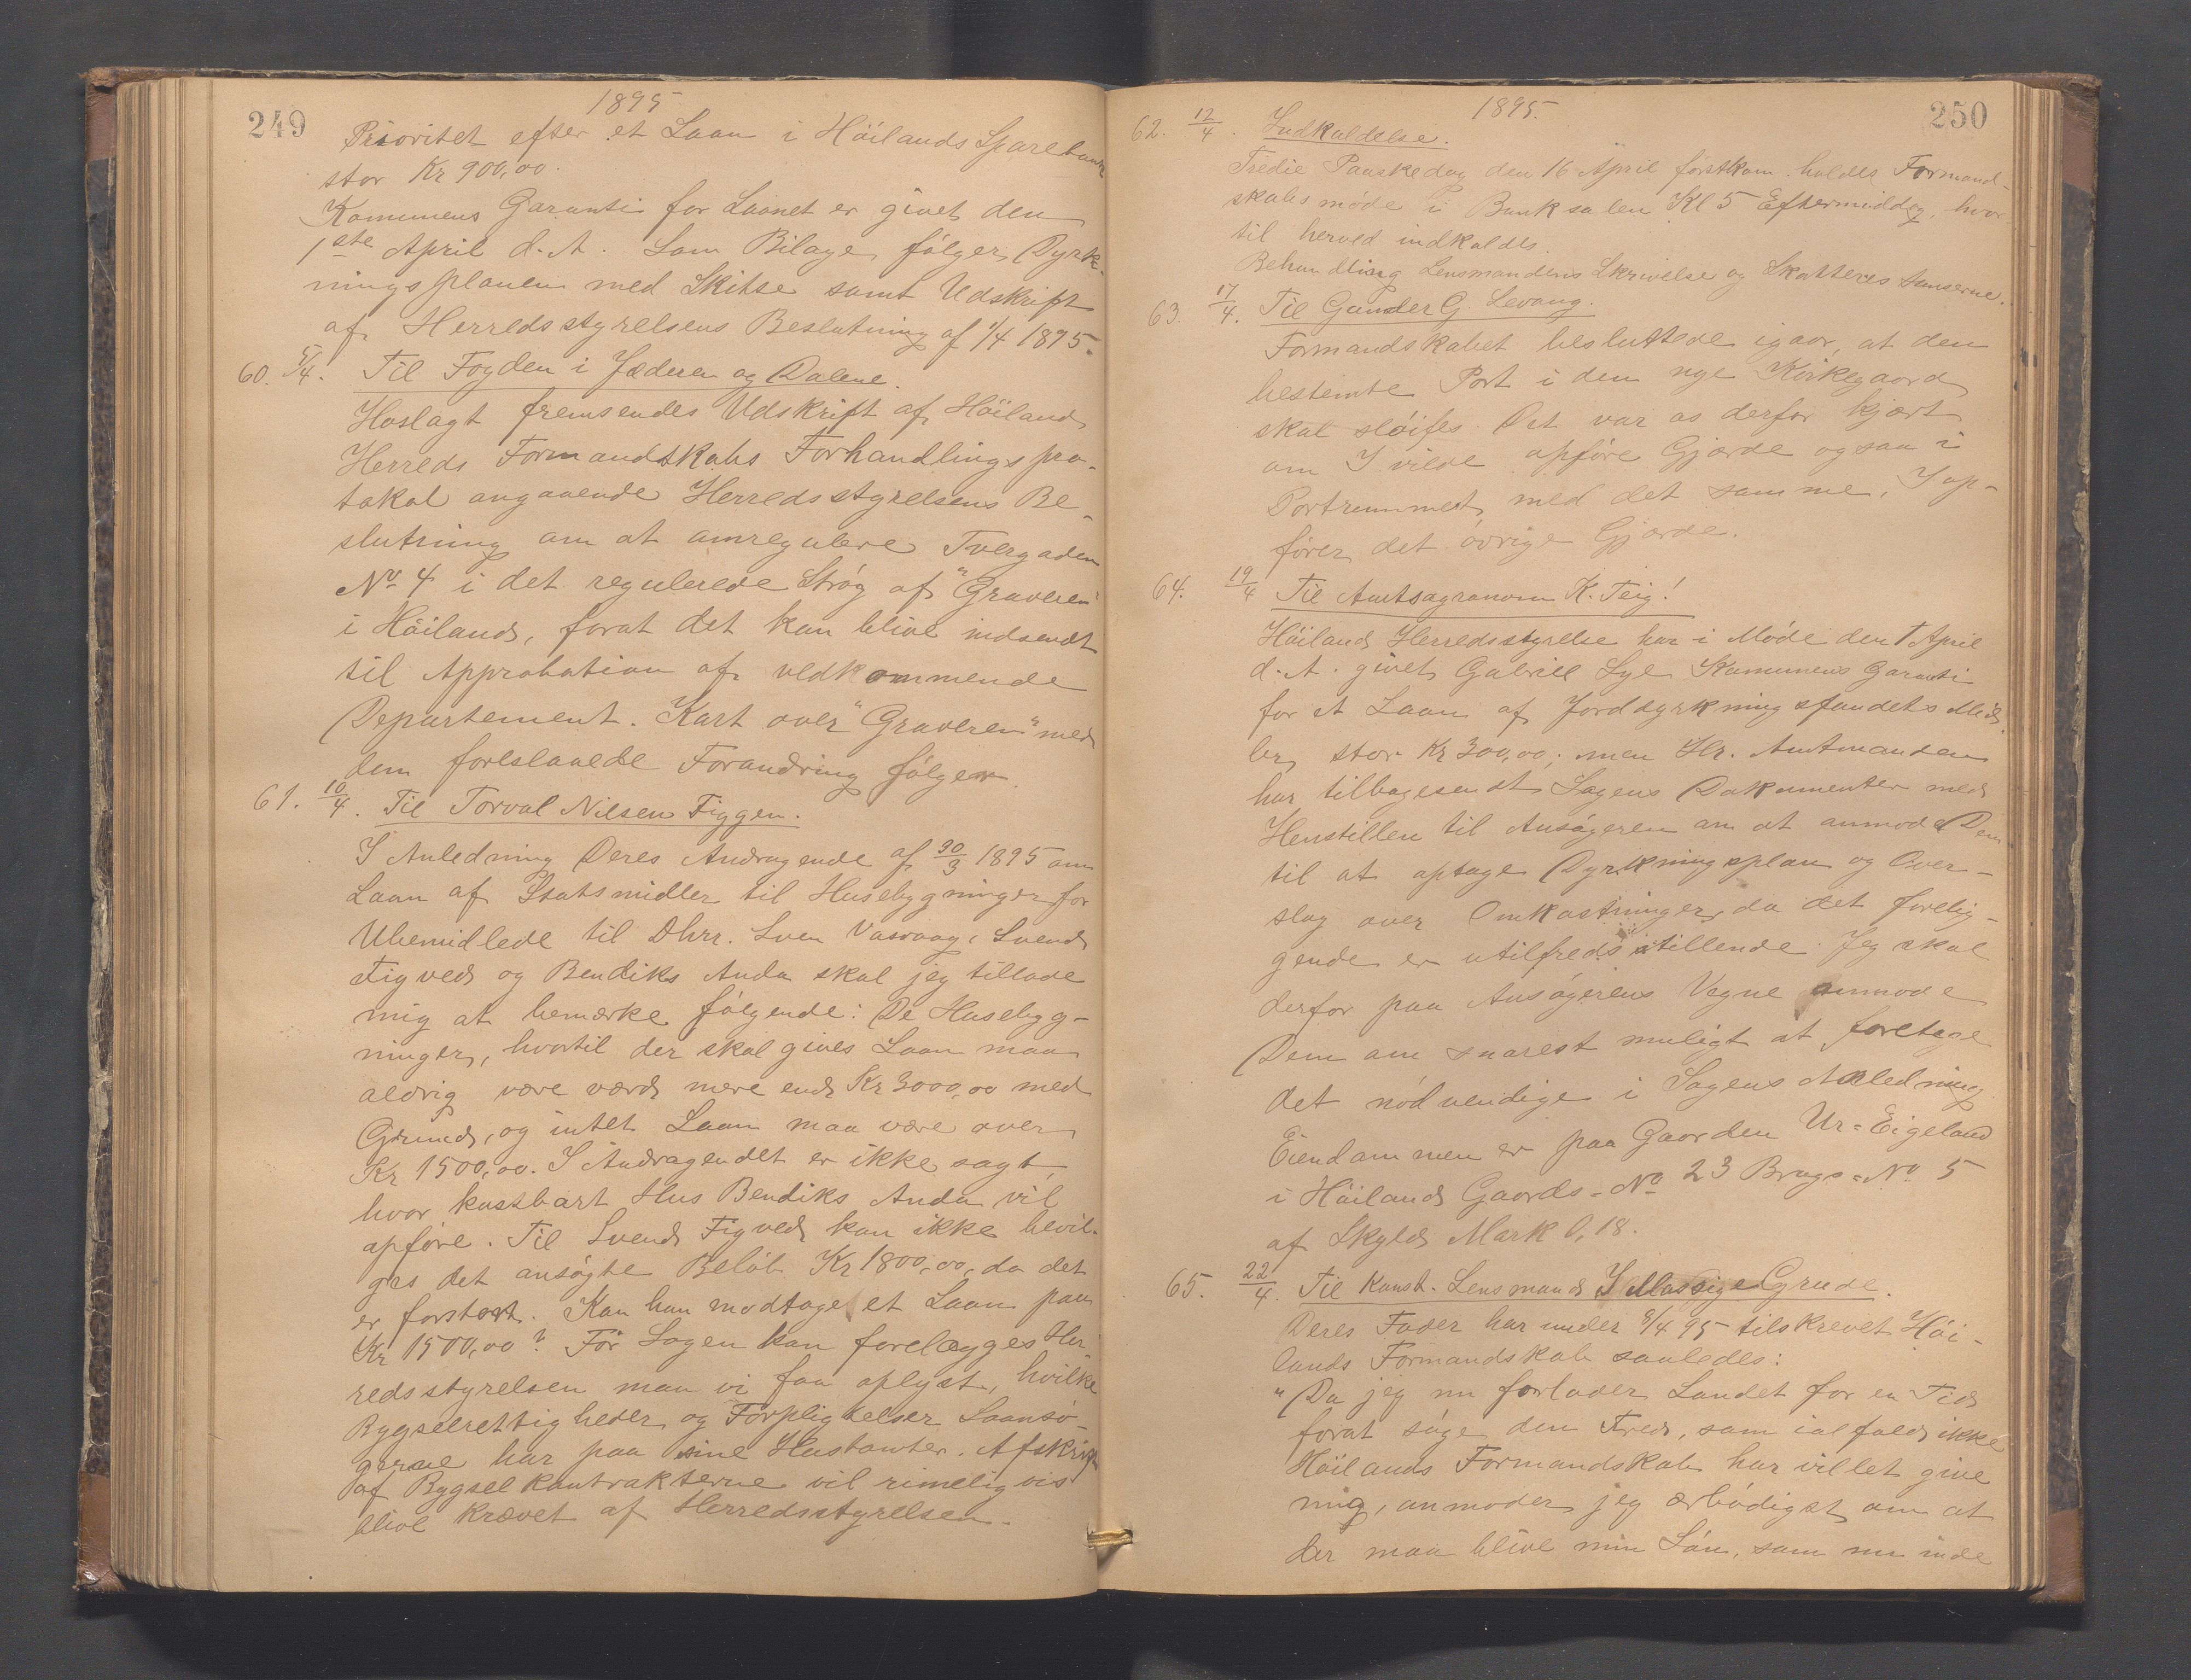 249
1895
Prioritet efter et Laan i Höilands Sparebank
stor Kr 900,00.
Kommunens Garanti for Laanet er givet den
1ste April d. A. Som Bilage følger Dyrk-
ningsplanen med Skitse samt Udskrift
af Herredsstyrelsens Beslutning af 1/4 1895.
60. 5/4. Til Fogden i Jæderen og Dalene.
Hoslagt fremsendes Udskrift af Höiland
Herreds Formandskabs Forhandlingspro-
tokol angaaende Herredsstyrelsens Be-
slutning om at omregulere Tvergaden
No 4 i det regulerede Strøg af "Graveren"
i Höiland, forat det kan blive indsendt
til Approbation af vedkommende
Departement. Kart over "Graveren" med
den foreslaaede Forandring følger.
61. 10/4. Til Torval Nilsen Figgen.
I Anledning Deres Andragende af 30/3 1895 om
Laan af Statsmidler til Husebygninger for
Ubemidlede til Dhrr. Sven Vasvaag, Svend
Figved og Bendiks Anda skal jeg tillade
mig at bemærke følgende: De Husebyg-
ninger, hvortil der skal gives Laan maa
aldrig være værd mere end Kr 3000,00 med
Grund, og intet Laan maa være over
Kr 1500,00. I Andragendet er ikke sagt,
hvor kostbart Hus Bendiks Anda vil
opføre. Til Svend Figved kan ikke bevil-
ges det ansøgte Beløb Kr 1800,00, da det
er forstort. Kan han modtage et Laan paa
Kr 1500,00? Før Sagen kan forelægges Her-
redsstyrelsen maa vi faa oplyst, hvilke
Bygselrettigheder og Forpligtelser Laansø-
gerne har paa sine Hustomter. Afskrift
af Bygselkontrakterne vil rimeligvis
blive krævet af Herredsstyrelsen.
250
1895.
62. 12/4. Indkaldelse.
Tredie Paaskedag den 16 April førstkom. holdes Formand-
skabsmøde i Banksalen Kl 5 Eftermiddag, hvor
til herved indkaldes.
Behandling Lensmandens Skrivelse og Skatteres tanserne.
63. 17/4. Til Gunder G. Levang.
Formandskabet besluttede igaar, at den
bestemte Port i den nye Kirkegaard
skal sløifes. Det var os derfor kjært
om I vilde opføre Gjærde ogsaa i
Portrummet med det samme, I op-
fører det øvrige Gjærde.
64. 19/4 Til Amtsagronom K. Teig!
Höiland Herredsstyrelse har i Møde den 1 April
d. A. givet Gabriel Lye Kommunens Garanti
for et Laan af Jorddyrkningsfondets Mid-
ler stor Kr 300,00; men Hr. Amtmanden
har tilbagesendt Sagens Dokumenter med
Henstillen til Ansøgeren om at anmode Dem
til at optage Dyrkningsplan og Over-
slag over Omkostninger, da det forelig-
gende er utilfredsstillende. Jeg skal
derfor paa Ansøgerens Vegne anmode
Dem om snarest muligt at foretage
det nødvendige i Sagens Anledning
Eiendommen er paa Gaarden Ur=Eigeland
i Höiland Gaards=No 23 Brugs=No 5
af Skyld Mark 0,18.
65. 22/4. Til Konst. Lensmand I Massige Grude.
Deres Fader har under 8/4 95 tilskrevet Höi-
lands Formandskab saaledes:
"Da jeg nu forlader Landet for en Tid
forat søge den Fred, som ialfald ikke
Höilands Formandskab har villet give
mig, anmoder jeg ærbødigst om at
der maa blive min Søn, som nu inde